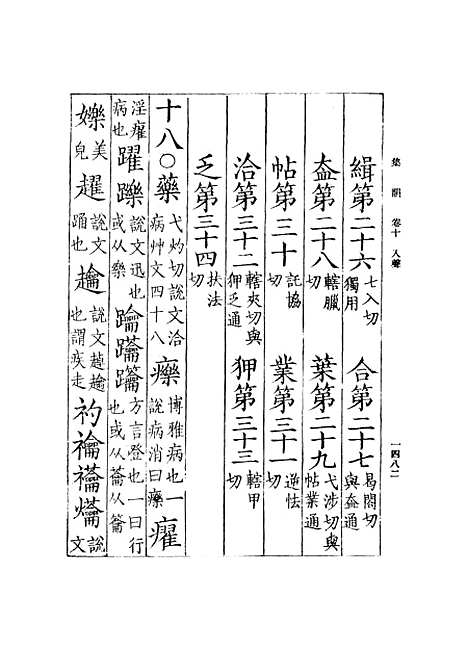 集韻 卷十 入聲
一四八二
緝第二十六七入切獨用 合第二十七曷閤切與盍通
盍第二十八轄臘切 葉第二十九弋涉切與帖業通
帖第三十託協切 業第三十一逆怯切
洽第三十二轄夾切與狎乏通 狎第三十三轄甲切
乏第三十四扶法切
十八○藥弋灼切說文治病艸文四十八 𤻲博雅病也一說病消曰𤻲 癯
淫癯病也 躍躒說文迅也或从樂 踚䠯方言登也一曰行也或从䈞从籥
嬫美皃 趯說文踊也 說文趠也謂疾走 礿禴說文